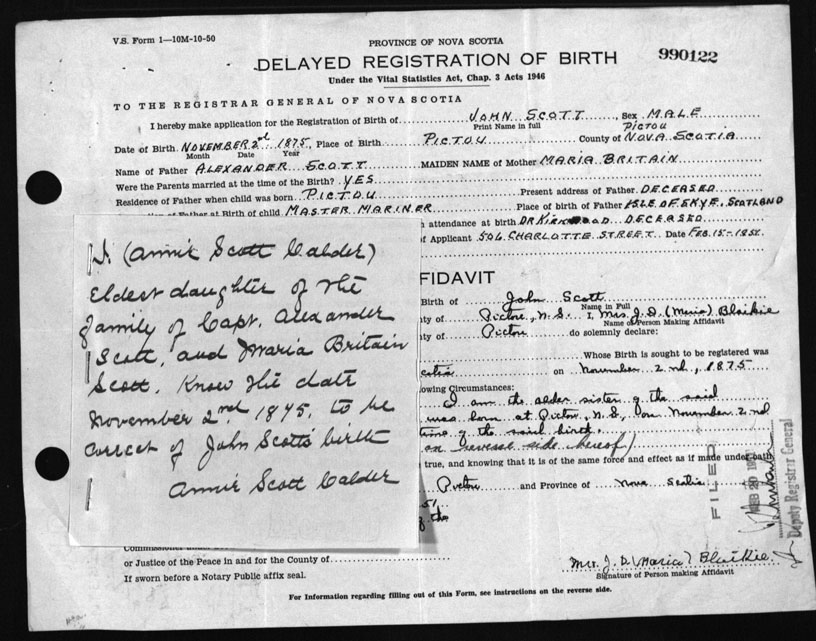 V.S. Form 1—10M-10-50
PROVINCE OF NOVA SCOTIA
990122
DELAYED REGISTRATION OF BIRTH
Under the Vital Statistics Act, Chap. 3 Acts 1946
TO THE REGISTRAR GENERAL OF NOVA SCOTIA
I hereby make application for the Registration of Birth of JOHN SCOTT, Sex MALE
Print Name in full
PICTOU
Date of Birth NOVEMBER 2nd 1875, Place of Birth PICTOU County of NOVA SCOTIA
Month Date Year
Name of Father ALEXANDER SCOTT MAIDEN NAME of Mother MARIA BRITAIN
Were the Parents married at the time of the Birth? YES
Residence of Father when child was born PICTOU Present address of Father DECEASED
of Father at Birth of child MASTER MARINER Place of birth of Father ISLE OF SKYE, SCOTLAND
attendance at birth DR KIRKWOOD DECEASED
of Applicant 506 CHARLOTTE STREET Date FEB. 15-
I (Annie Scott Calder)
Eldest daughter of the
family of Capt. Alexander
Scott, and Maria Britain
Scott. Know the date
November 2nd 1875, to be
correct of John Scotts birth
Annie Scott Calder
FIDAVIT
Birth of John Scott
Name in Full
ty of Pictou, N.S. I, Mrs. J.D. (Maria) Blaikie
Name of Person Making Affidavit
ty of Pictou do solemnly declare:
Whose Birth is sought to be registered was
on November 2nd, 1875
owing Circumstances:
I am the older sister of the said
was born at Pictou, N.S., on November 2nd
time of the said birth.
on reverse side hereof)
true, and knowing that it is of the same force and effect as if made under oath
Pictou and Province of Nova Scotia
51
of the
FILED
FEB 20
Deputy Registrar General
or Justice of the Peace in and for the County of
If sworn before a Notary Public affix seal.
Mrs. J. D. (Maria) Blaikie
Signature of Person making Affidavit
For Information regarding filling out of this Form, see instructions on the reverse side.